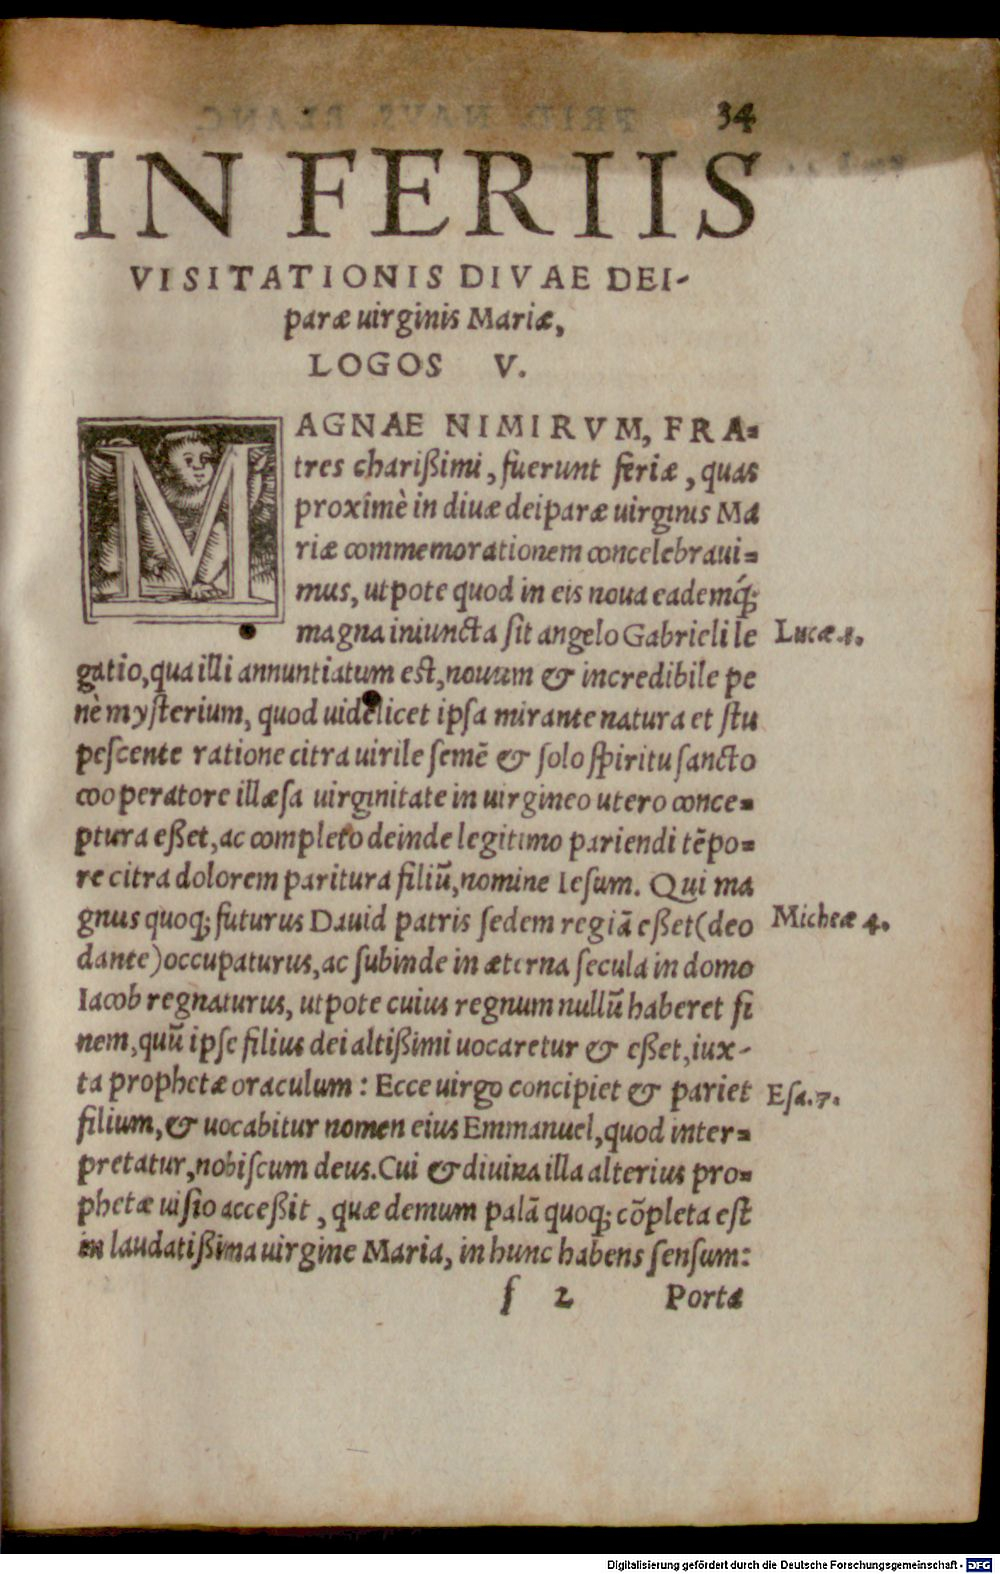 34
IN FERIIS
VISITATIONIS DIVAE DEI-
paræ uirginis Mariæ,
LOGOS V.
MAGNAE NIMIRVM, FRA=
tres charißimi, fuerunt feriæ, quas
proximè in diuæ deiparæ uirginis Ma
riæ commemorationem concelebraui=
mus, utpote quod in eis noua eademq́;
magna iniuncta sit angelo Gabrieli le
Lucæ 1.
gatio, qua illi annuntiatum est, nouum & incredibile pe
nè mysterium, quod uidelicet ipsa mirante natura et stu
pescente ratione citra uirile semē & solo spiritu sancto
cooperatore illæsa uirginitate in uirgineo utero conce=
ptura eßet, ac completo deinde legitimo pariendi tēpo=
re citra dolorem paritura filiū, nomine Iesum. Qui ma
gnus quoq; futurus Dauid patris sedem regiā eßet (deo
Micheæ 4.
dante) occupaturus, ac subinde in æterna secula in domo
Iacob regnaturus, utpote cuius regnum nullū haberet fi
nem, quū ipse filius dei altißimi uocaretur & eßet, iux-
ta prophetæ oraculum: Ecce uirgo concipiet & pariet
Esa. 7.
filium, & uocabitur nomen eius Emmanuel, quod inter=
pretatur, nobiscum deus. Cui & diuina illa alterius pro=
phetæ uisio acceßit, quæ demum palā quoq; cōpleta est
in laudatißima uirgine Maria, in hunc habens sensum:
f 2 Porta
Digitalisierung gefördert durch die Deutsche Forschungsgemeinschaft - DFG